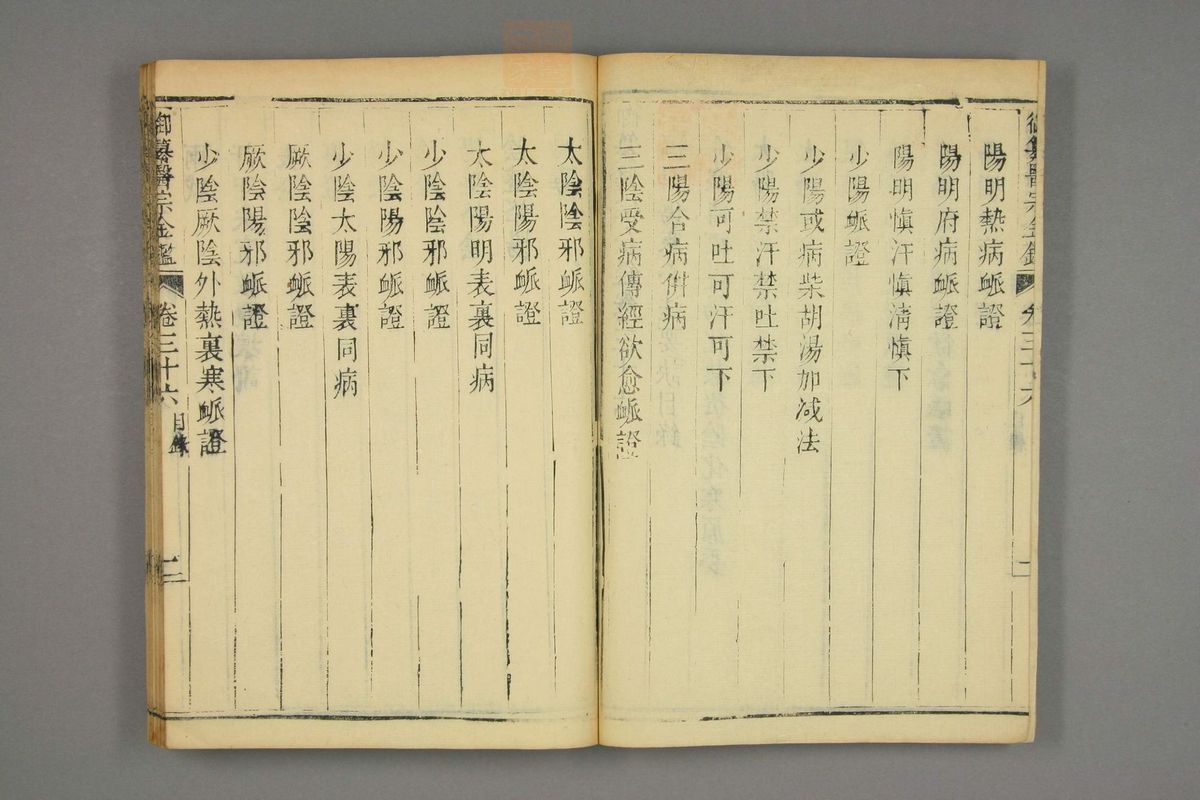 陽明熱病脈證
陽明府病脈證
陽明慎汗慎清慎下
少陽脈證
少陽或病柴胡湯加減法
少陽禁汗禁吐禁下
少陽可吐可汗可下
三陽合病併病
三陰受病傳經欲愈脈證
太陰陰邪脈證
太陰陽邪脈證
太陰陽明表裏同病
少陰陰邪脈證
少陰陽邪脈證
少陰太陽表裏同病
厥陰陰邪脈證
厥陰陽邪脈證
少陰厥陰外熱裏寒脈證
御纂醫宗金鑑 卷三十六 目錄 二